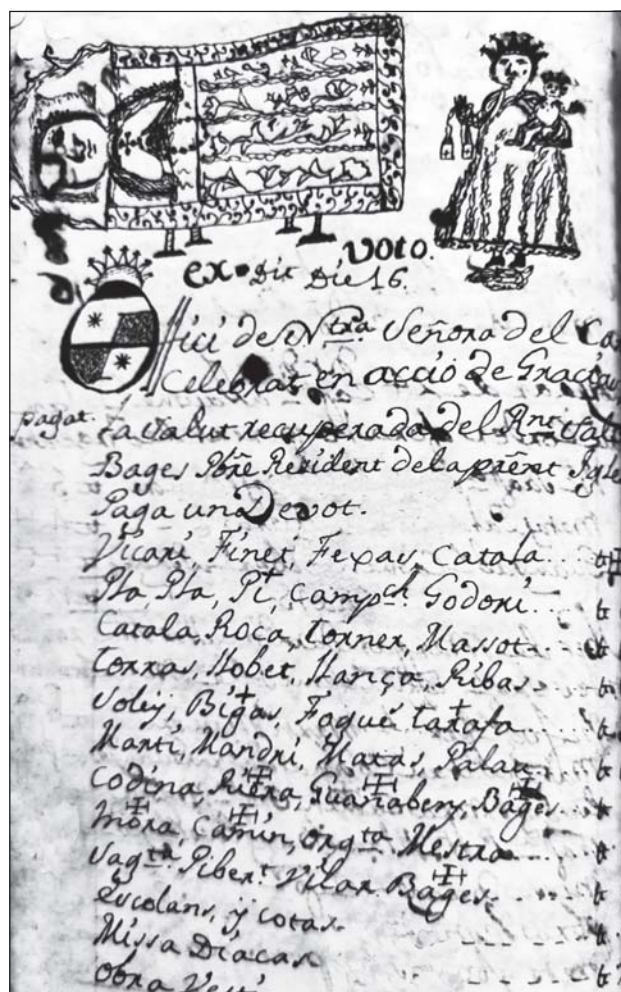 ex voto.
Dit Die 16.
ici de Ntra. Señora del Ca
Celebrat en acció de Gracia
pagat. La salut recuperada del Rnt
Bages Pbre Resident de la prēnt Igle
Paga una Devot.
Vicari, Finet, Fexas, Catala
Pla, Pla, Pi, Campch. Godori
Catala, Roca, Torner, Massot
Torras, Llobet, Llança, Ribas
Soley, Bigas, Fogué, Tarafa
Marti, Mandri, Matas, Palau
Codina, Riera, Guanabens, Bages
Mora, Camin, Orgta. Mestra
Sagta. Pibert. Vilar Bages
Escolans, y cotas.
Missa Diacas
Obra Vesti